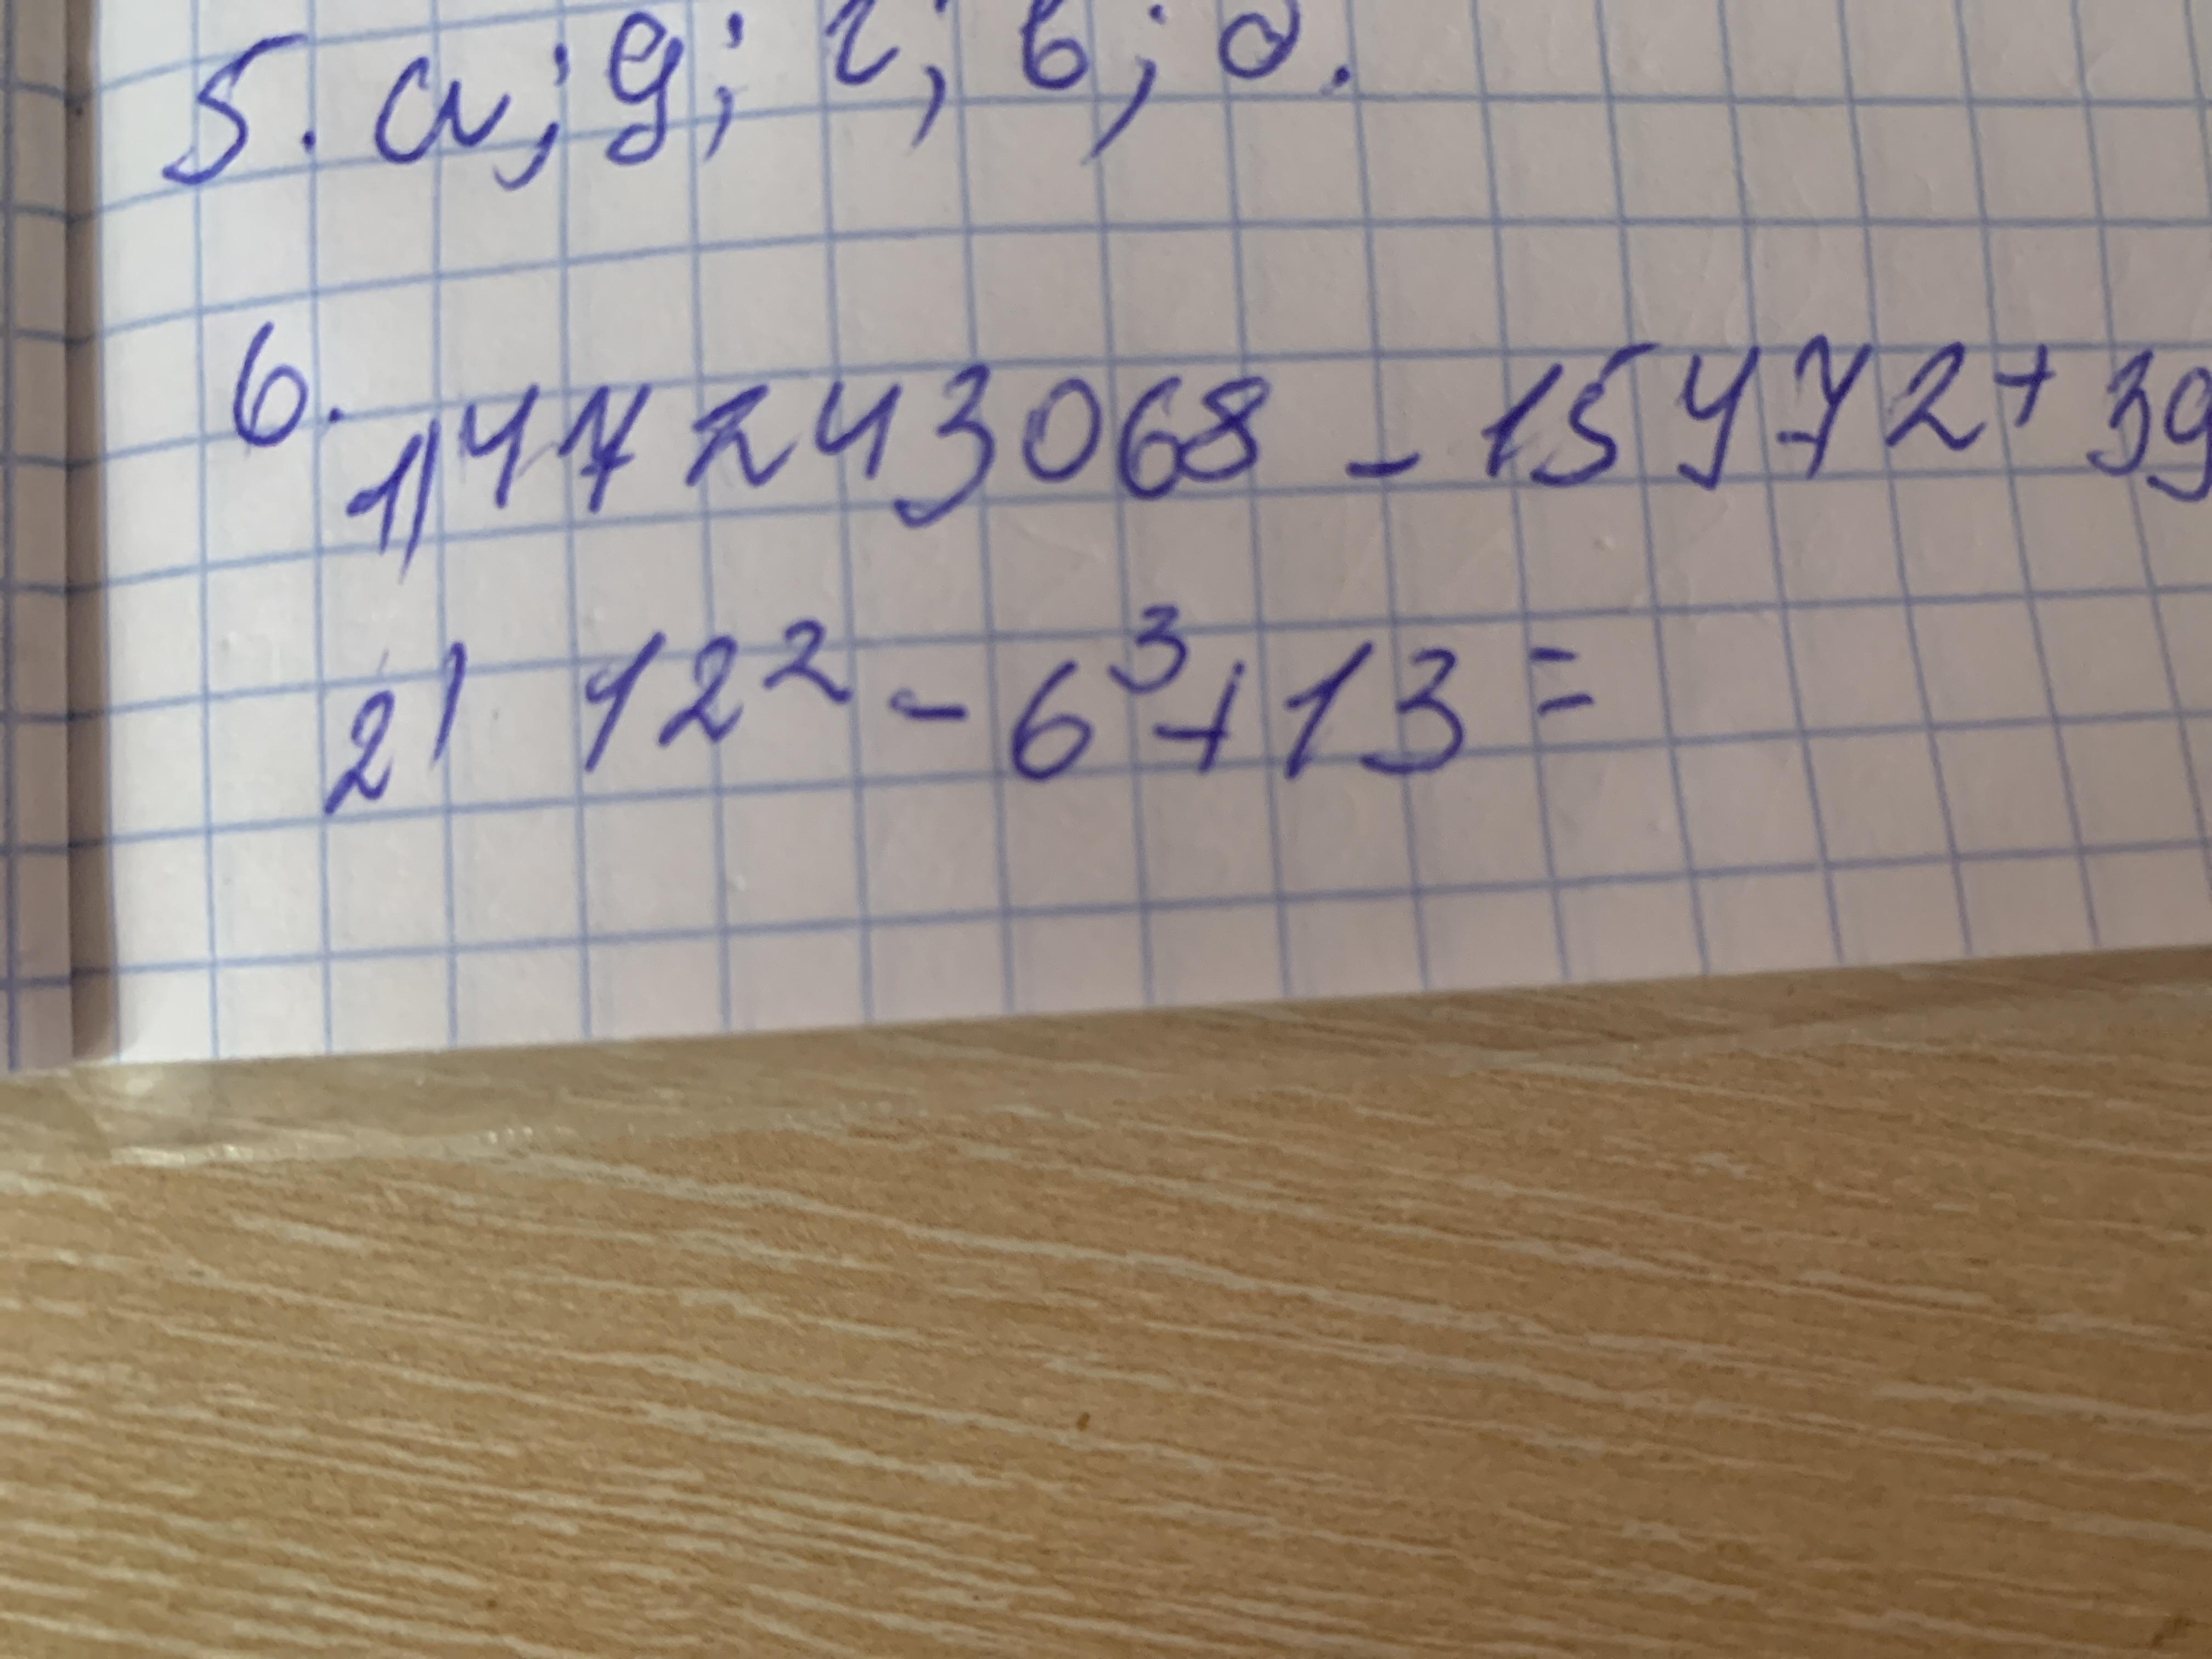 5. а; д; г; в; б.
6.
1) 47243068 - 15472 + 39
2) 12² - 6³ + 13 =